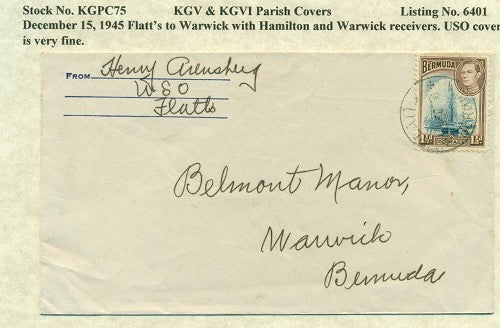 Stock No. KGPC75 KGV & KGVI Parish Covers Listing No. 6401
December 15, 1945 Flatt's to Warwick with Hamilton and Warwick receivers. USO cover
is very fine.
FROM Henry Arensberg
USO
Flatts
BERMUDA
POSTAGE
1½d 1½d
Belmont Manor,
Warwick
Bermuda